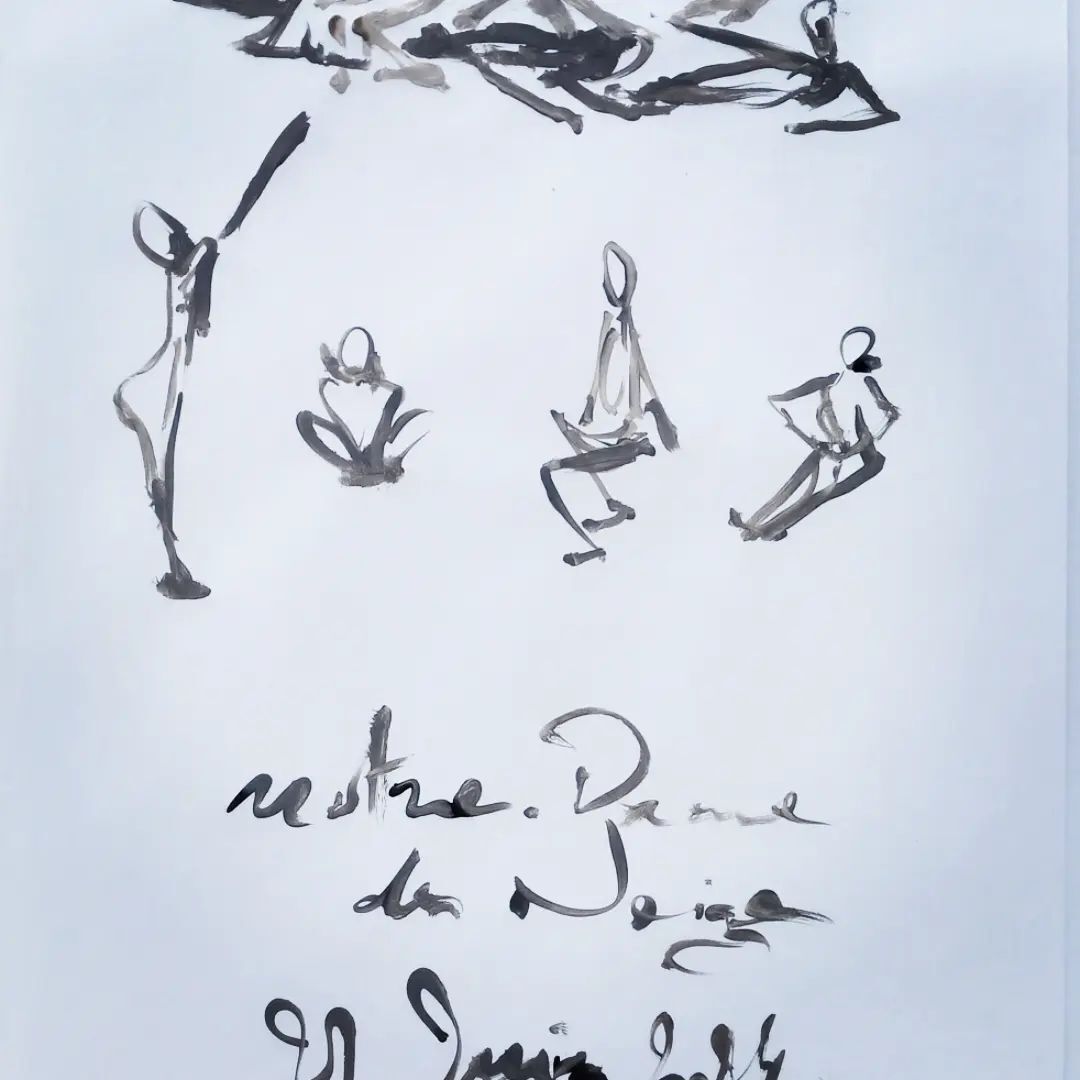 notre. Dame
des Neige
Juin